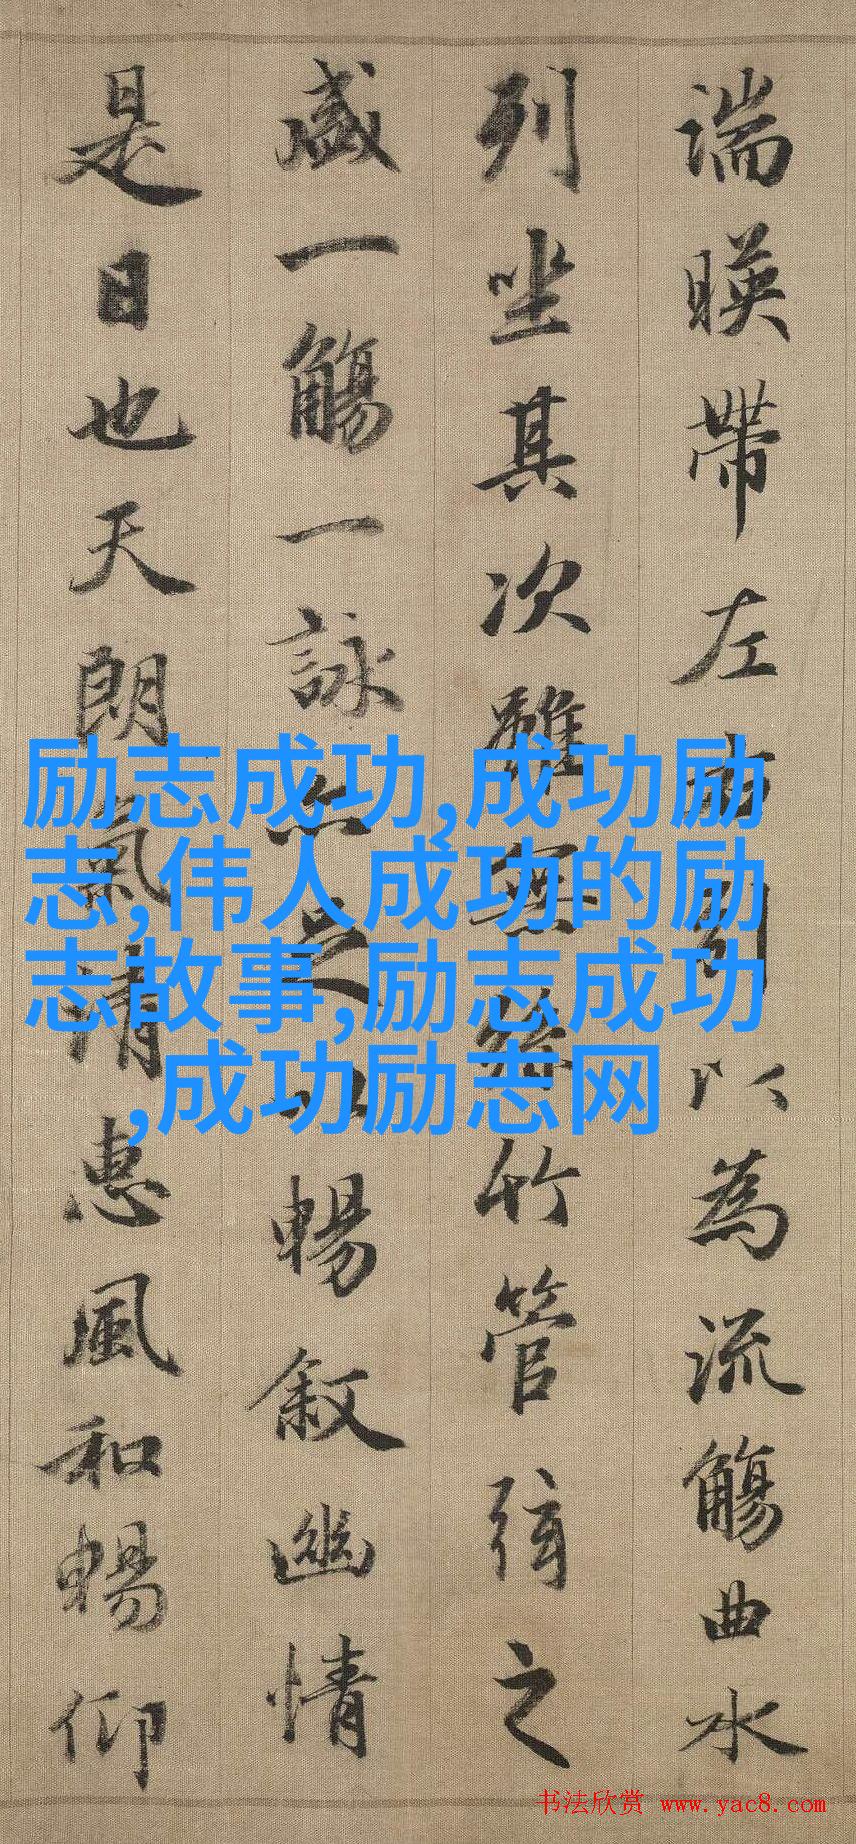 湍暎帶左右引以為流觴曲水
列坐其次雖無絲竹管弦之
盛一觴一詠亦足以暢叙幽情
是日也天朗氣清惠風和暢仰
励志成功,成功励
志,伟人成功的励
志故事,励志成功
,成功励志网
书法欣赏 www.yac8.com